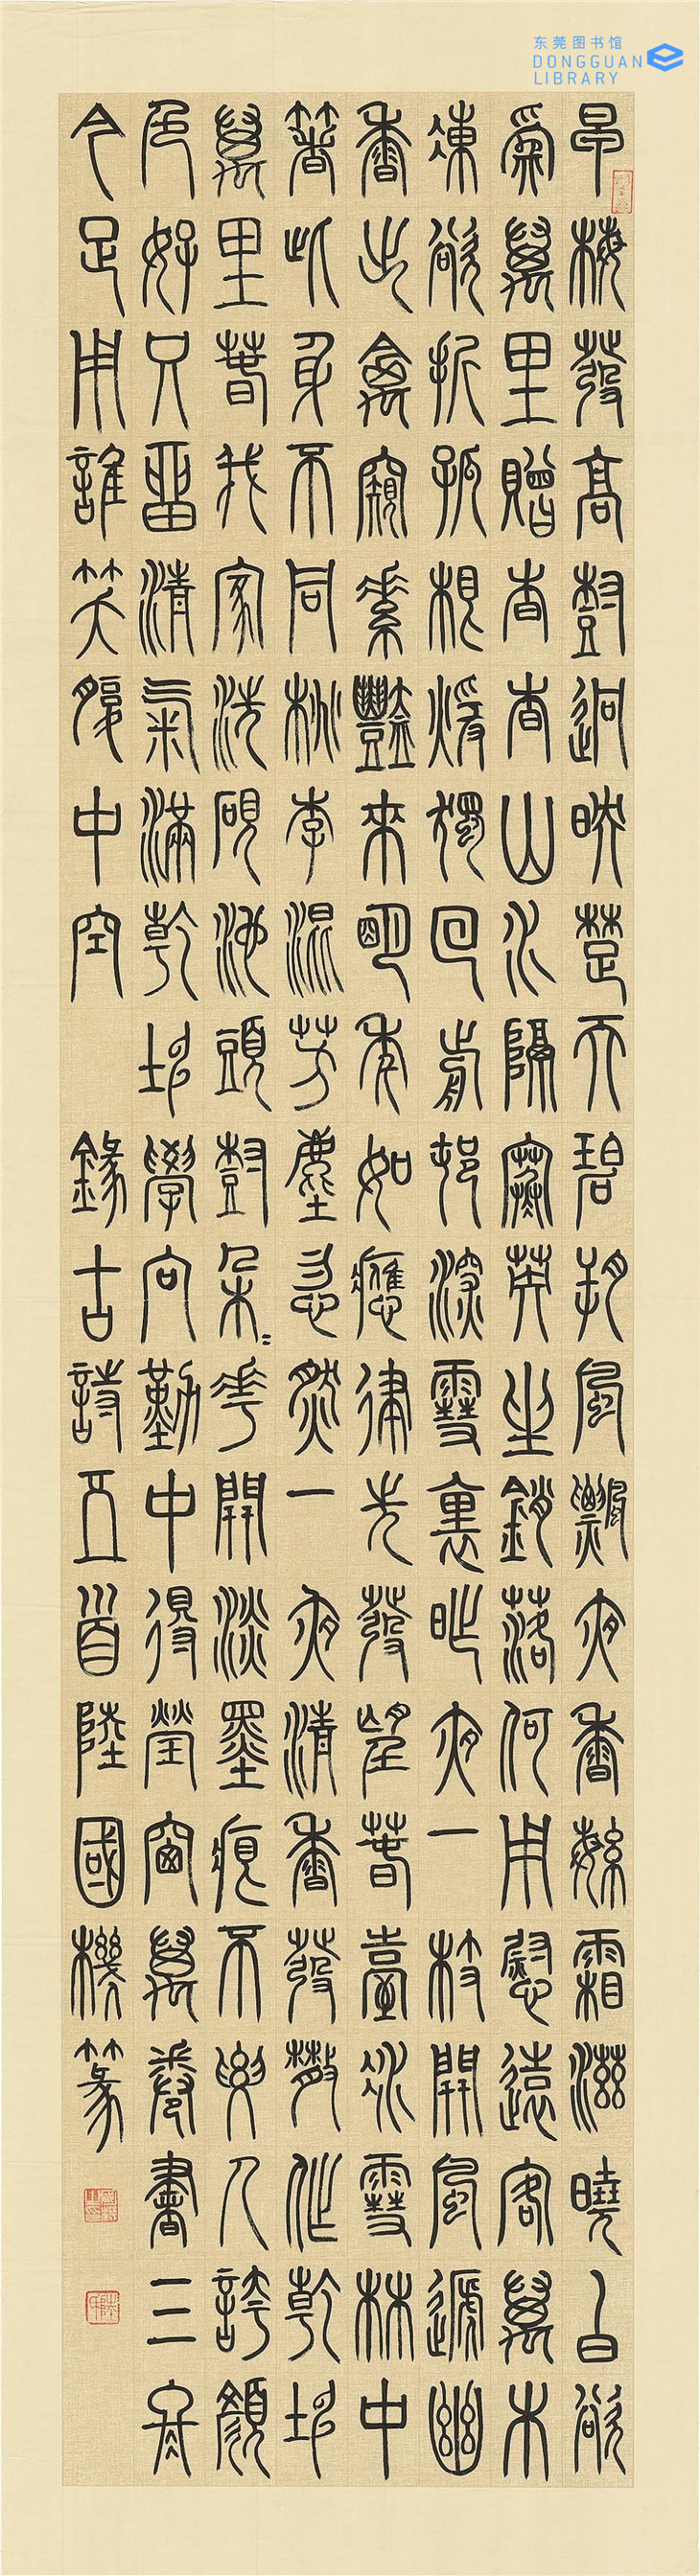 东莞图书馆
DONGGUAN
LIBRARY
早梅發高樹迥映楚天碧朔風飄夜香繁霜滋曉白欲
為萬里贈杳杳山水隔寒英坐銷落何用慰遠客萬木
凍欲折孤根暖獨回前村深雪裏昨夜一枝開風遞幽
香出禽窺素豔來明年如應律先發望春臺冰雪林中
著此身不同桃李混芳塵忽然一夜清香發散作乾坤
萬里春我家洗硯池頭樹朵〻花開淡墨痕不要人誇顏
色好只留清氣滿乾坤學向勤中得螢窗萬卷書三冬
今足用誰笑腹中空 錄古詩五首陸國機篆